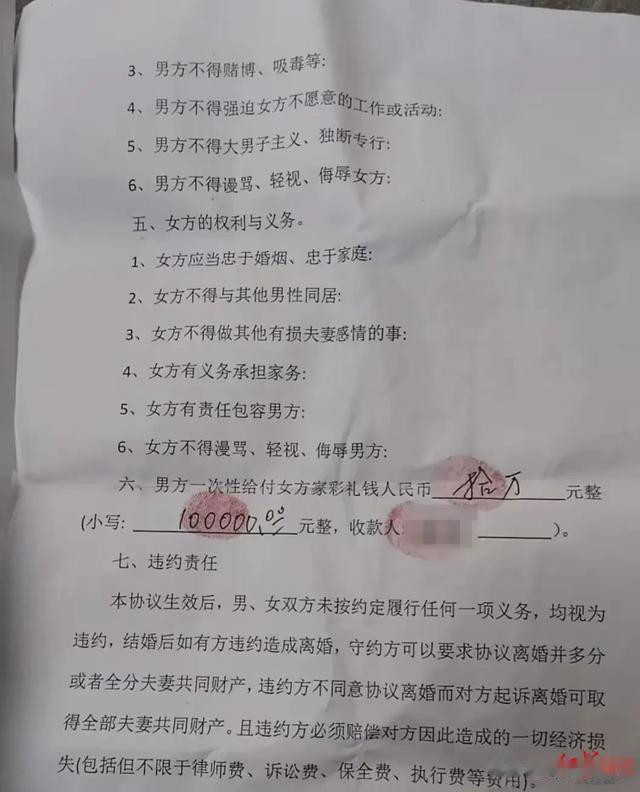 3、男方不得赌博、吸毒等:
4、男方不得强迫女方不愿意的工作或活动:
5、男方不得大男子主义、独断专行:
6、男方不得谩骂、轻视、侮辱女方:
五、女方的权利与义务。
1、女方应当忠于婚烟、忠于家庭:
2、女方不得与其他男性同居:
3、女方不得做其他有损夫妻感情的事:
4、女方有义务承担家务:
5、女方有责任包容男方:
6、女方不得漫骂、轻视、侮辱男方:
六、男方一次性给付女方家彩礼钱人民币 拾万 元整
(小写: 100000.00 元整，收款人 )。
七、违约责任
本协议生效后，男、女双方未按约定履行任何一项义务，均视为
违约，结婚后如有方违约造成离婚，守约方可以要求协议离婚并多分
或者全分夫妻共同财产，违约方不同意协议离婚而对方起诉离婚可取
得全部夫妻共同财产。且违约方必须赔偿对方因此造成的一切经济损
失(包括但不限于律师费、诉讼费、保全费、执行费等费用)。